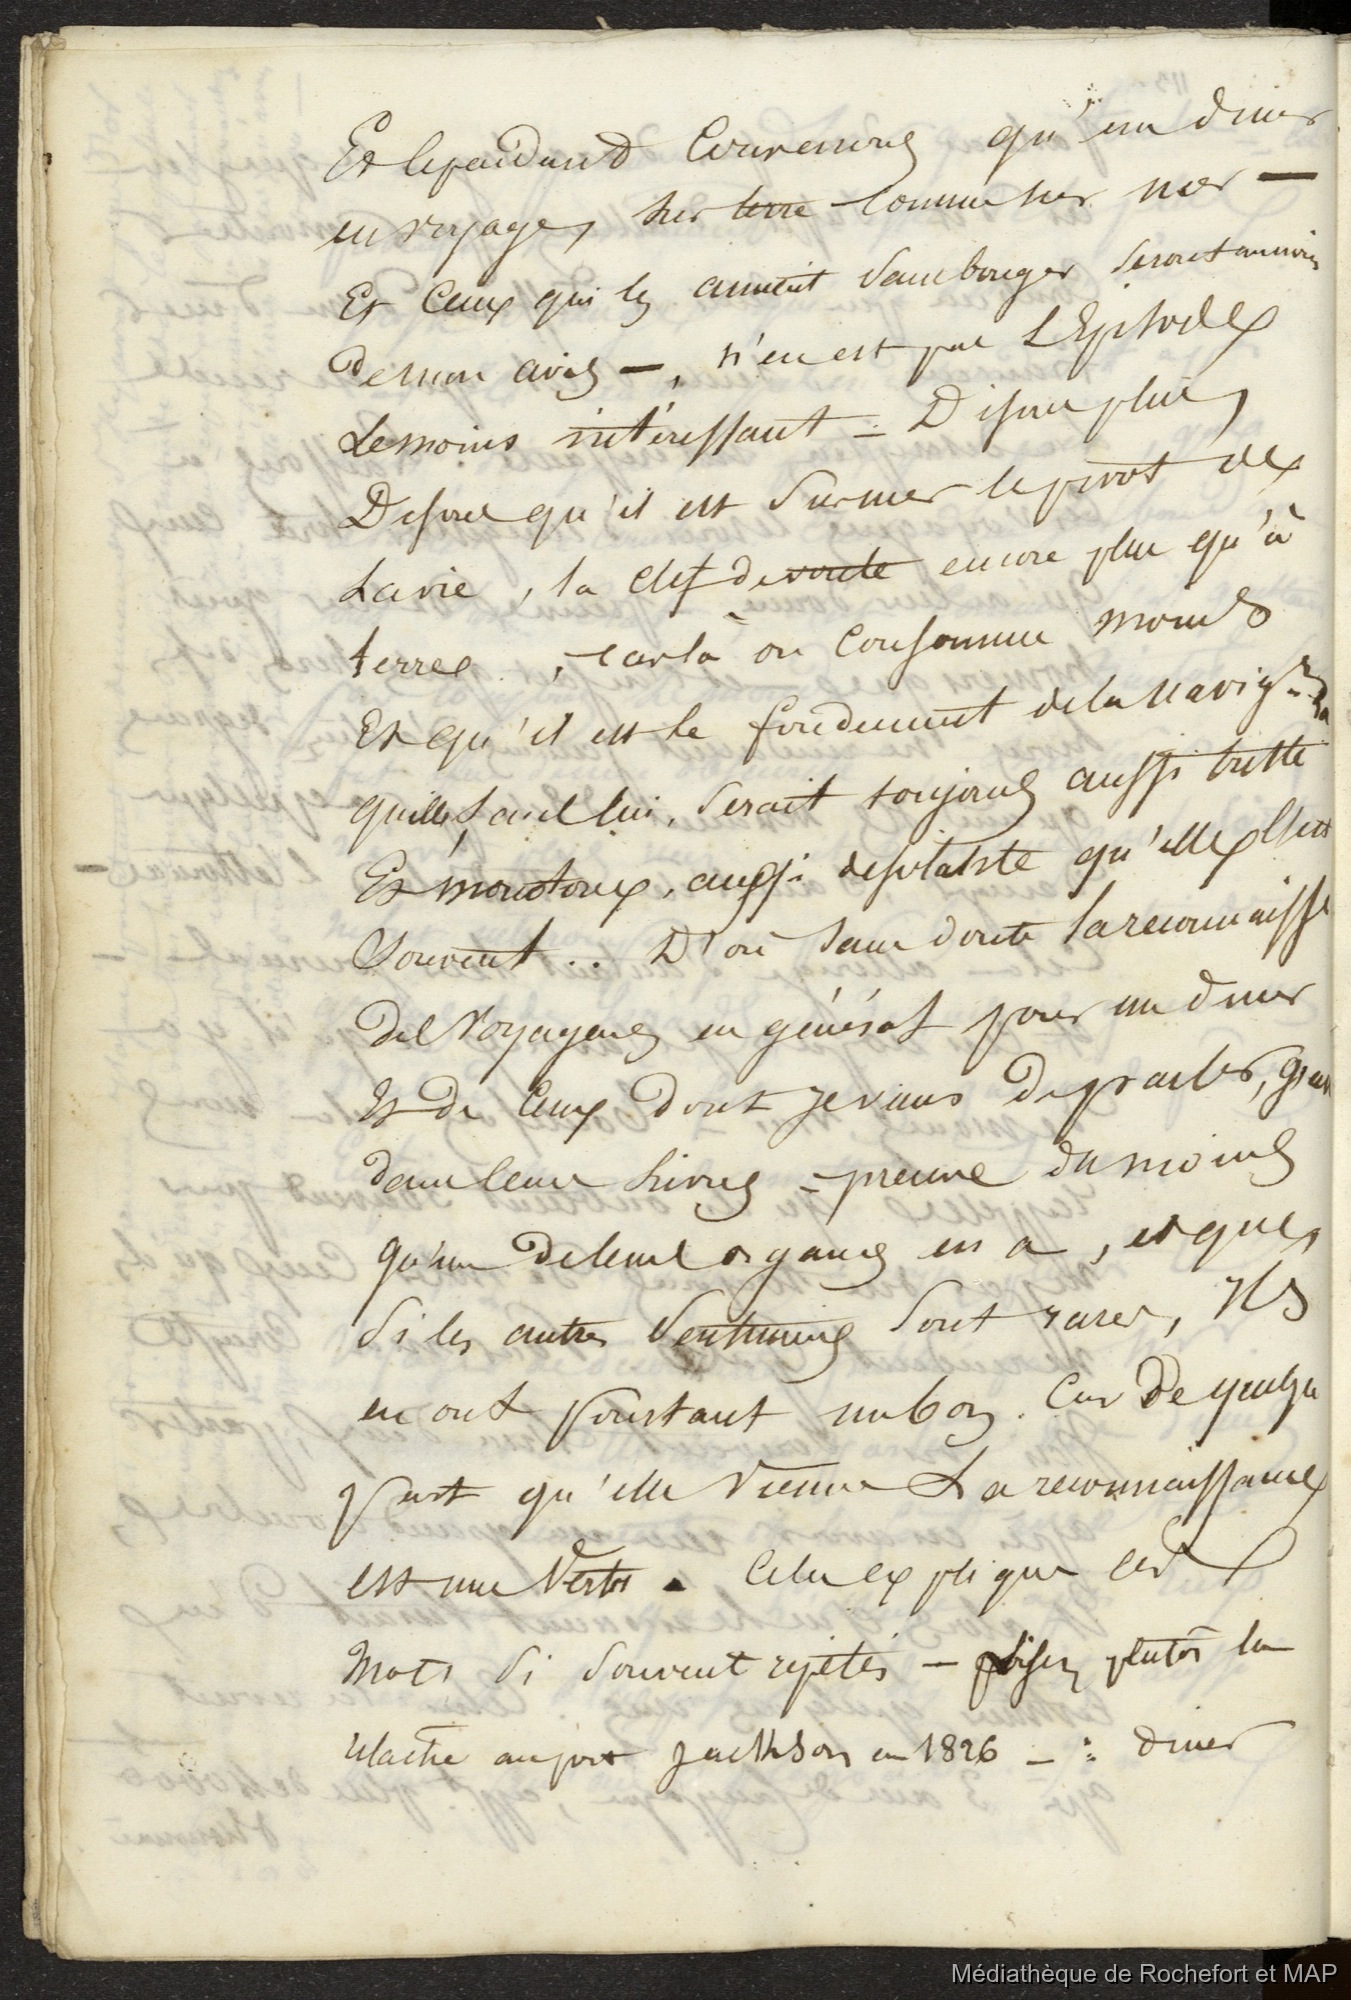 Et cependant Convenons qu'un diner
en voyage, sur terre comme sur mer —
Et Ceux qui les aiment sans bouger seront au moins
de mon avis —, n'en est pas L'Episode
Le moins intéressant — Disons plus,
Disons qu'il est sur mer le pivot de
La vie, la clef de voute encore plus qu'à
terre, car là on Consomme moins
Et qu'il est le fondement de la navig.on la
quelle, sans lui, serait toujours aussi triste
Et monotone, aussi
qu'elle l'est
souvent.. D'où sans doute la reconnaiss
des Voyageurs en général pour un diner
Et de Ceux dont je viens de parler,
dans leurs Livres — preuve du moins
qu'un de leurs organes en a, et que,
Si les autres sentimens sont rares, ils
en ont pourtant un bon. Car De quelque
part qu'elle vienne La reconnaissance
est une Vertu. Cela explique ces
Mots si souvent répétés — plutôt la
relache au port Jackson en 1826 — : diner
Médiathèque de Rochefort et MAP